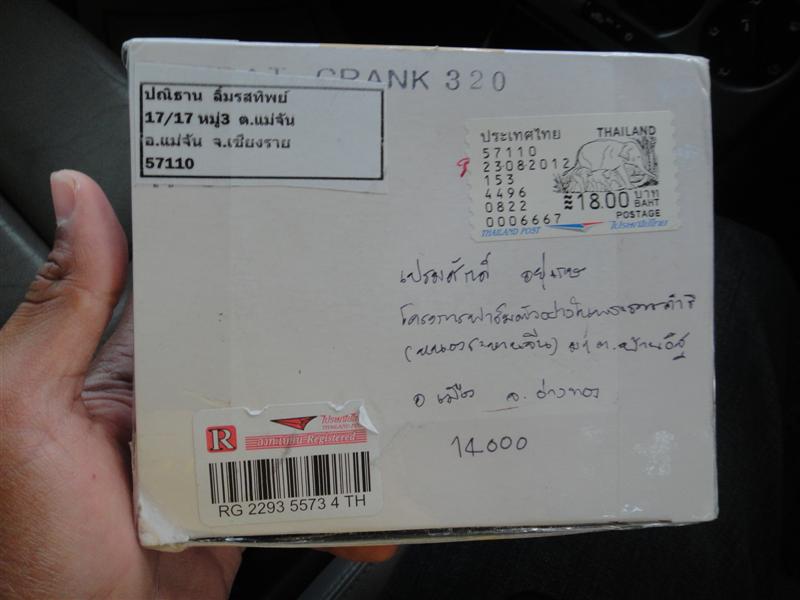 CRANK 320
ปณิธาน ลิ้มรสทิพย์
17/17 หมู่3 ต.แม่จัน
อ.แม่จัน จ.เชียงราย
57110
ประเทศไทย THAILAND
57110
23-08-2012
153
4496
0822
0006667
≈18.00 บาท
BAHT
POSTAGE
THAILAND POST ไปรษณีย์ไทย
เปรมศักดิ์
โครงการฟาร์มตัวอย่างในพระราชดำริ
(หนองระหารจีน) ต.บ้านอิฐ
อ เมือง จ. อ่างทอง
14000
ไปรษณีย์ไทย
THAILAND POST
R ลงทะเบียน-Registered
RG 2293 5573 4 TH